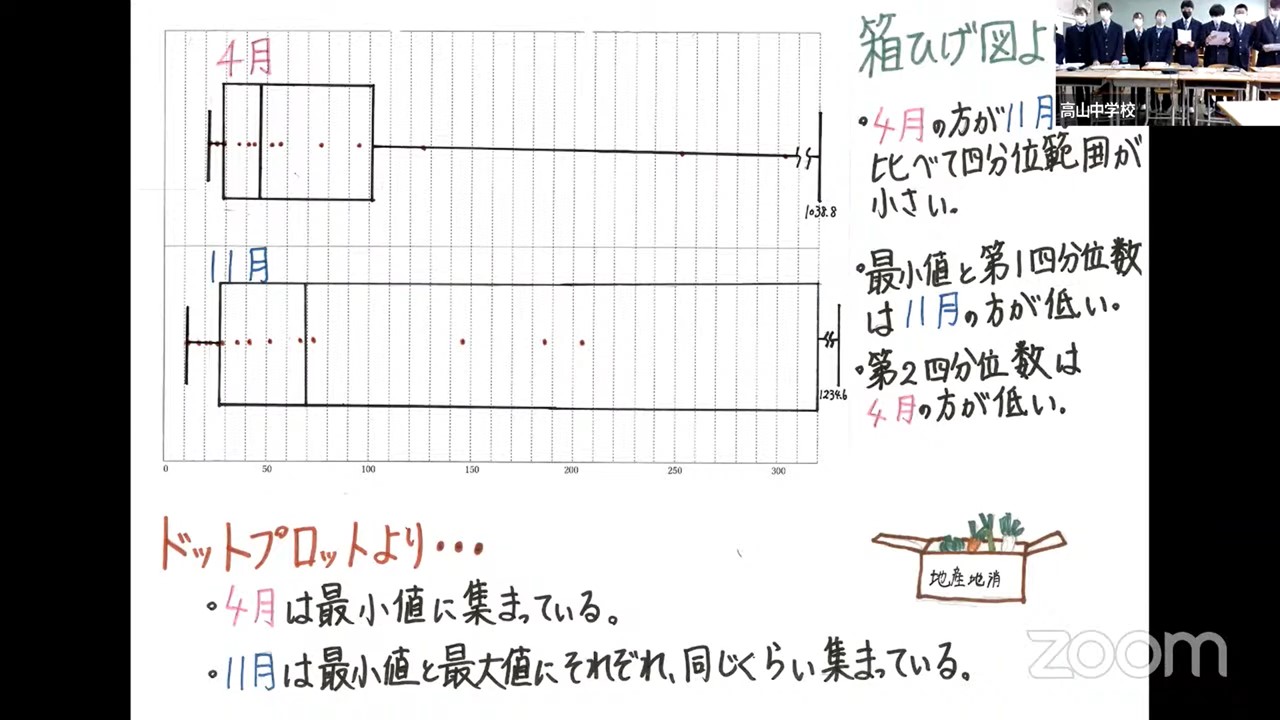 4月
1038.8
11月
1234.6
0 50 100 150 200 250 300
箱ひげ図よ
・4月の方が11月
比べて四分位範囲が
小さい。
・最小値と第1四分位数
は11月の方が低い。
・第2四分位数は
4月の方が低い。
高山中学校
ドットプロットより・・・
・4月は最小値に集まっている。
・11月は最小値と最大値にそれぞれ、同じくらい集まっている。
地産地消
zoom